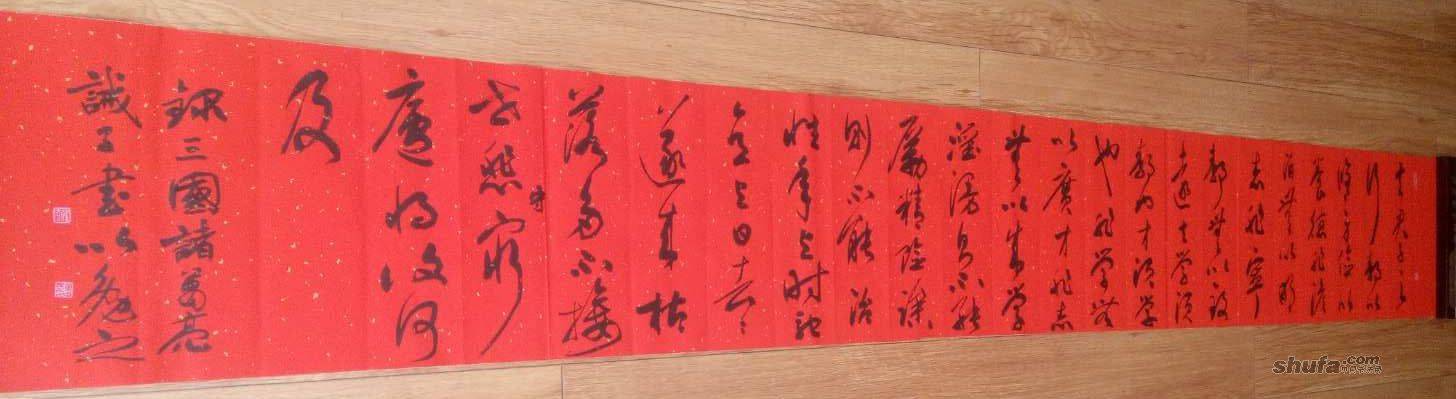 夫君子之
行静以
修身俭以
养德非澹
泊無以明
志非寧
静無以致
远夫学须
静也才须学
也非学無
以廣才非志
無以成学
淫漫则不能
励精险躁
则不能治
性年与时驰
意与日去
遂成枯
落多不接
世悲守穷
庐将復何
及
録三國諸葛亮
誡子書以勉之
shufa.com